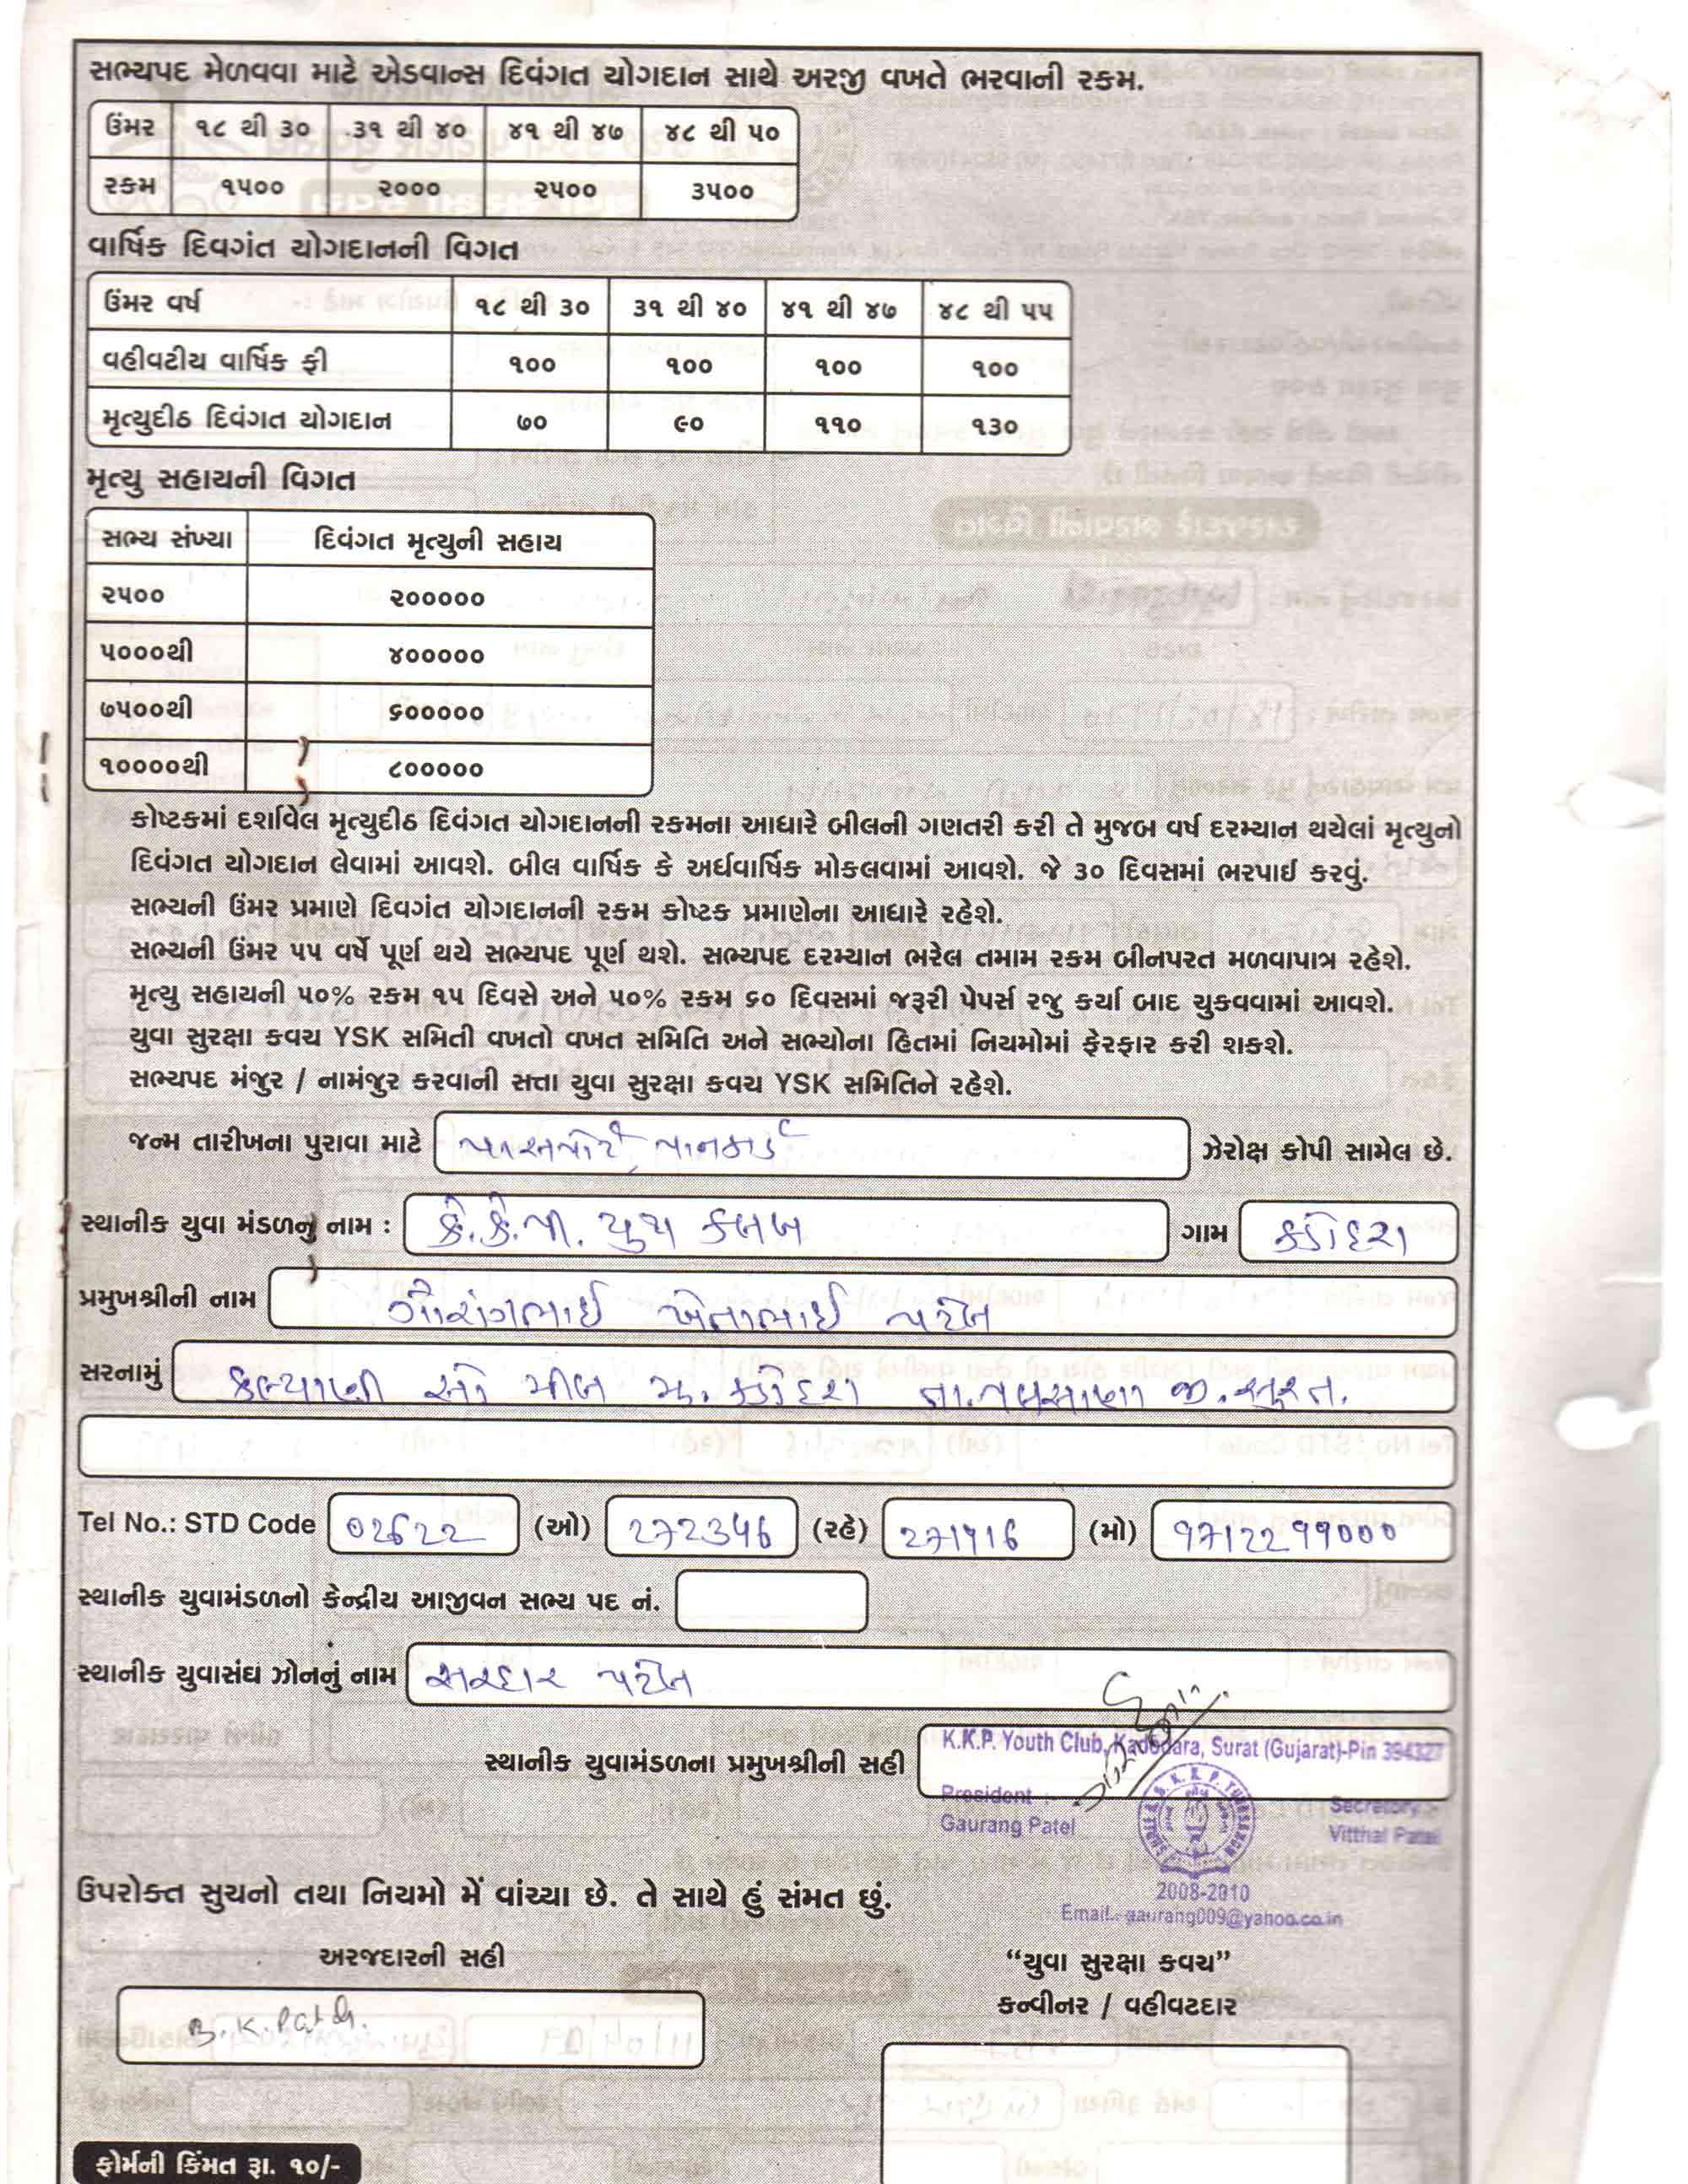 સભ્યપદ મેળવવા માટે એડવાન્સ દિવંગત યોગદાન સાથે અરજી વખતે ભરવાની રકમ.
ઉંમર ૧૮ થી ૩૦ ૩૧ થી ૪૦ ૪૧ થી ૪૭ ૪૮ થી ૫૦
રકમ ૧૫૦૦ ૨૦૦૦ ૨૫૦૦ ૩૫૦૦
વાર્ષિક દિવગંત યોગદાનની વિગત
ઉંમર વર્ષ ૧૮ થી ૩૦ ૩૧ થી ૪૦ ૪૧ થી ૪૭ ૪૮ થી ૫૫
વહીવટીય વાર્ષિક ફી ૧૦૦ ૧૦૦ ૧૦૦ ૧૦૦
મૃત્યુદીઠ દિવંગત યોગદાન ૭૦ ૯૦ ૧૧૦ ૧૩૦
મૃત્યુ સહાયની વિગત
સભ્ય સંખ્યા દિવંગત મૃત્યુની સહાય
૨૫૦૦ ૨૦૦૦૦૦
૫૦૦૦થી ૪૦૦૦૦૦
૭૫૦૦થી ૬૦૦૦૦૦
૧૦૦૦૦થી ૮૦૦૦૦૦
કોષ્ટકમાં દર્શાવેલ મૃત્યુદીઠ દિવંગત યોગદાનની રકમના આધારે બીલની ગણતરી કરી તે મુજબ વર્ષ દરમ્યાન થયેલાં મૃત્યુનો
દિવંગત યોગદાન લેવામાં આવશે. બીલ વાર્ષિક કે અર્ધવાર્ષિક મોકલવામાં આવશે. જે ૩૦ દિવસમાં ભરપાઈ કરવું.
સભ્યની ઉંમર પ્રમાણે દિવગંત યોગદાનની રકમ કોષ્ટક પ્રમાણેના આધારે રહેશે.
સભ્યની ઉંમર ૫૫ વર્ષે પૂર્ણ થયે સભ્યપદ પૂર્ણ થશે. સભ્યપદ દરમ્યાન ભરેલ તમામ રકમ બીનપરત મળવાપાત્ર રહેશે.
મૃત્યુ સહાયની ૫૦% રકમ ૧૫ દિવસે અને ૫૦% રકમ ૬૦ દિવસમાં જરૂરી પેપર્સ રજુ કર્યા બાદ ચુકવવામાં આવશે.
યુવા સુરક્ષા કવચ YSK સમિતી વખતો વખત સમિતિ અને સભ્યોના હિતમાં નિયમોમાં ફેરફાર કરી શકશે.
સભ્યપદ મંજુર / નામંજુર કરવાની સત્તા યુવા સુરક્ષા કવચ YSK સમિતિને રહેશે.
જન્મ તારીખના પુરાવા માટે પાસપોર્ટ, પાનકાર્ડ ઝેરોક્ષ કોપી સામેલ છે.
સ્થાનીક યુવા મંડળનું નામ : કે.કે.પી. યુથ કલબ ગામ કડોદરા
પ્રમુખશ્રીની નામ ગૌરાંગભાઈ ખેતાભાઈ પટેલ
સરનામું કલ્યાણી સો મીલ મુ. કડોદરા તા.પલસાણા જી.સુરત.
Tel No.: STD Code 02622 (ઓ) 272346 (રહે) 271916 (મો) 9712299000
સ્થાનીક યુવામંડળનો કેન્દ્રીય આજીવન સભ્ય પદ નં.
સ્થાનીક યુવાસંઘ ઝોનનું નામ સરદાર પટેલ
સ્થાનીક યુવામંડળના પ્રમુખશ્રીની સહી K.K.P. Youth Club, Kadodara, Surat (Gujarat)-Pin 394327
President :- Secretory :-
Gaurang Patel Vitthal Patel
2008-2010
Email.-gaurang009@yahoo.co.in
ઉપરોક્ત સુચનો તથા નિયમો મેં વાંચ્યા છે. તે સાથે હું સંમત છું.
અરજદારની સહી
B.K.Patel.
“યુવા સુરક્ષા કવચ”
કન્વીનર / વહીવટદાર
ફોર્મની કિંમત રૂા. ૧૦/-